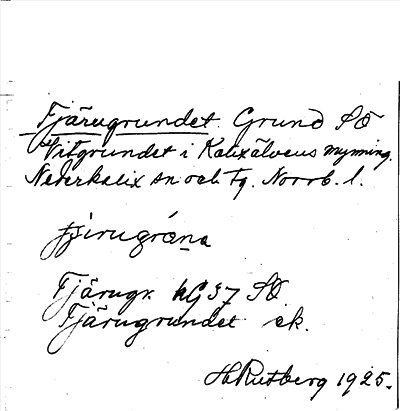 Fjärugrundet. Grund SO
Vitgrundet i Kalixälvens mynning.
Nederkalix sn och tg. Norrb. l.
fjärugr. kG 37 SO
Fjärugrundet ek.
H Rutberg 1925.